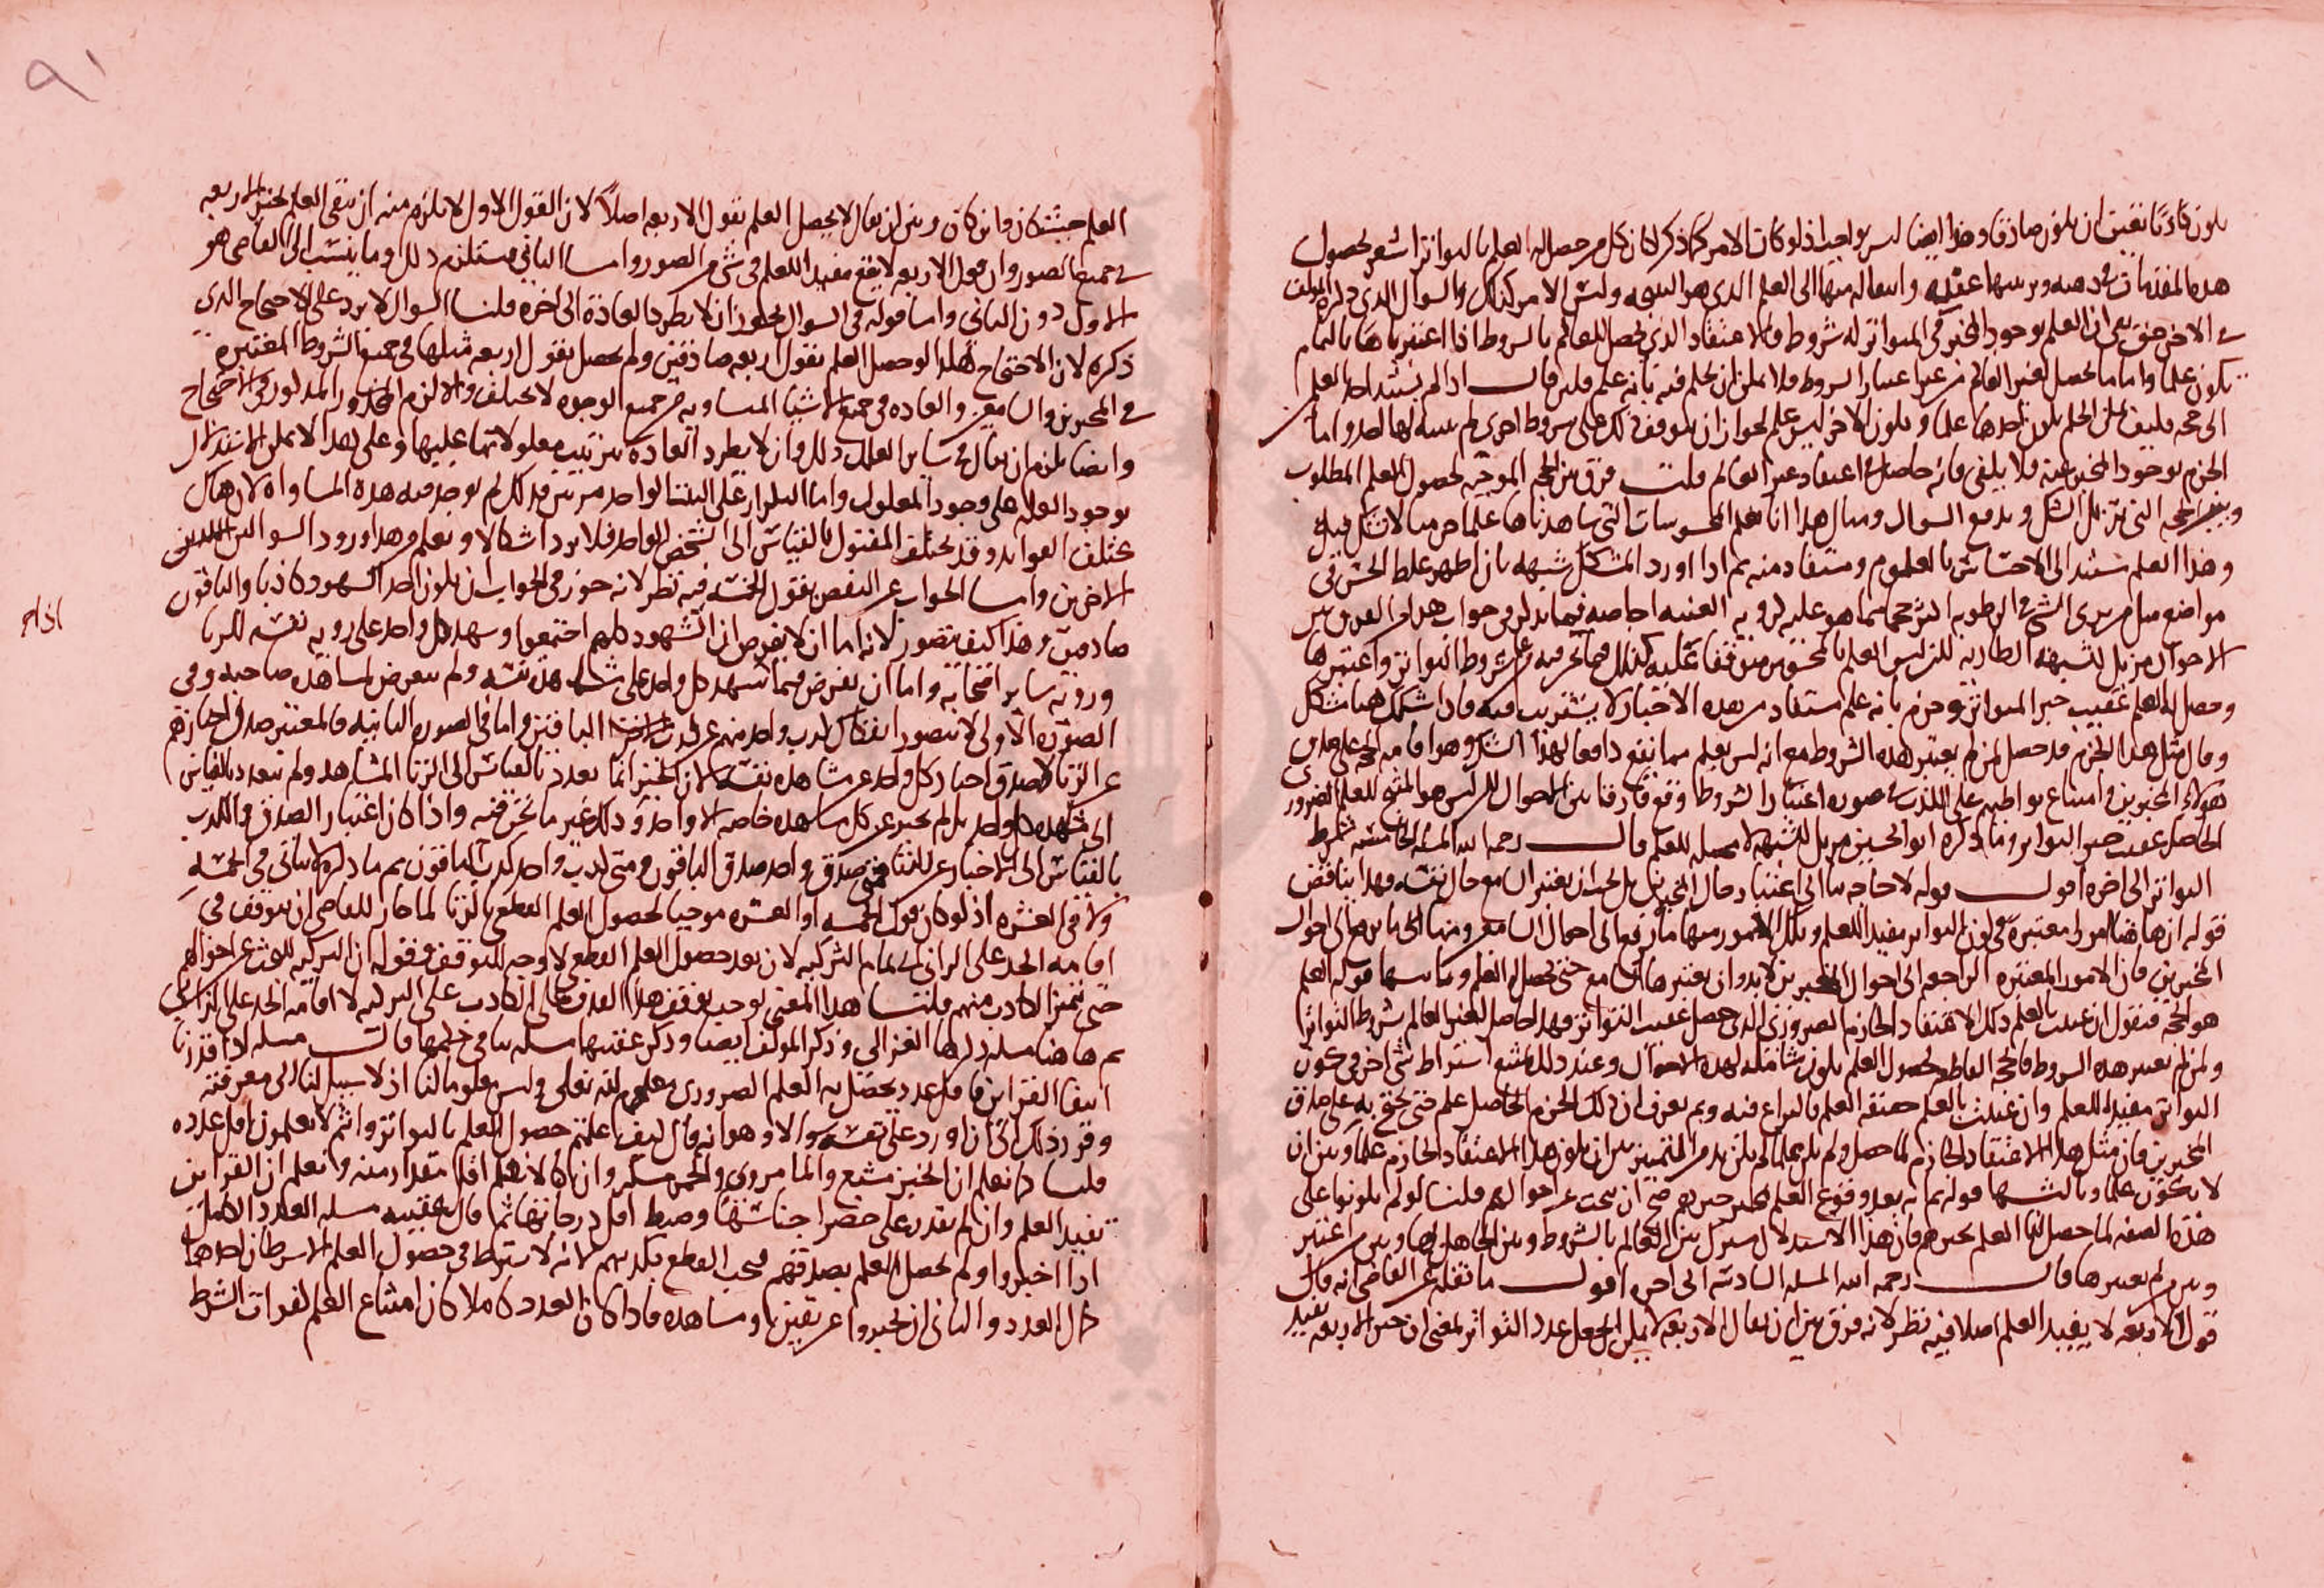 يكون كاذبا تعين ان يكون صادقا وهذا ايضا ليس بواجب اذ لو كان الامر كما ذكر لكان كل من حصل له العلم بالتواتر اشعر بحصول
هذه المقدمات في ذهنه وترتيبها عقيبه وانتقاله منها الى العلم الذي هو النتيجة وليس الامر كذلك والسوال الذي ذكره المولف
في الاخر حق بمعنى ان العلم بوجود المخبر في المتواتر له شروط والاعتقاد الذي يحصل للعالم بالشروط اذا اعتبرناها بالتمام
يكون علما واما ما يحصل لغير العالم من غير اعتبار الشروط فلا يمكن ان يحكم فيه بانه علم فلئن قال اذا لم يستند احد العلم
الى حجة فكيف يمكن الحكم بكون احدها علما ويكون الاخر ليس بعلم لجواز ان يتوقف ذلك على شروط اخرى لم يتنبه لها احد واما
الجزم بوجود المخبر عنه فلا يكفي فانه حاصل في اعتقاد غير العالم قلت فرق بين الحجة الموجبة لحصول العلم المطلوب
وبين الحجة التي تزيل الشك وتدفع السوال ومثال هذا انا نعلم المحسوسات التي شاهدناها علما جزما لا نشك فيه
وهذا العلم مستند الى الاحساس بالمعلوم ومستفاد منه ثم اذا اورد المشكك شبهة بان اظهر غلط الحس في
مواضع مثل من يرى الشي في الرطوبة اكثر حجما مما هو عليه كروية العنبة اجاصة فما يذكر في جواب هذا والفرق بين
الاحوال مزيل للشبهة الطارية لكن ليس العلم بالمحسوس متوقفا عليه كذلك فيما نحن فيه من عرف شروط التواتر واعتبرها
وحصل له العلم عقيب خبر المتواتر وجزم بانه علم مستفاد من هذه الاخبار لا يستريب فيه فاذا شكك هنا مشكك
وقال مثل هذا الجزم قد حصل لمن لم يعتبر هذه الشروط مع انه ليس بعلم مما يقع دافعا لهذا الشك وهو اقامة الحجة على صدق
هولاء المخبرين وامتناع تواطيهم على الكذب في صورة اعتبار الشروط وقع فارقا بين الاحوال لكن ليس هو المنتج للعلم الضروري
الحاصل عقيب خبر التواتر وما ذكره ابو الحسين مزيل للشبهة لا محصله للعلم قال رحمه الله المسله الخامسة شرط
التواتر الى اخره اقول قوله لا حاجة بنا الى اعتبار حال المخبرين بل يجب ان يعتبر السامع حال نفسه وهذا يناقض
قوله ان هاهنا امورا معتبرة في كون التواتر مفيدا للعلم وتلك الامور منها ما يرجع الى احوال السامع ومنها الى ما يرجع الى احوال
المخبرين فان الامور المعتبرة الراجعة الى احوال المخبرين لا بد وان يعتبرها السامع حتى يحصل له العلم وثانيها قوله العلم
هو الحجة فنقول ان عنيت بالعلم ذلك الاعتقاد الجازم الضروري الذي حصل عقيب التواتر فهذا حاصل لغير العالم بشروط التواتر
ولمن لم يعتبر هذه الشروط فالحجة القاطعة لحصول العلم يكون شاملة لهذه الاحوال وعند ذلك يمتنع اشتراط شي اخر في كون
التواتر مفيدا للعلم وان عنيت بالعلم حقيقة العلم فالنزاع فيه وبم يعرف ان ذلك الجزم الحاصل علم حتى يحتج به على صدق
المخبرين فان مثل هذا الاعتقاد الجازم لما حصل ولم يكن علما لم يكن بد من التمييز بين ان يكون هذا الاعتقاد الجازم علما وبين ان
لا يكون علما وثالثها قوله ثم انه بعد وقوع العلم بخبرهم صح ان يبحث عن احوالهم قلنا لو لم يكونوا على
هذه الصفة لما حصل لنا العلم بخبرهم فان هذا الاستدلال مشترك بين العالم بالشروط وبين الجاهل بها وبين من اعتبر
وبين من لم يعتبرها قال رحمه الله المسله السادسة الى اخره اقول ما نقله عن القاضي انه قال
قول الاربعة لا يفيد العلم اصلا فيه نظر لانه فرق بين ان يقال الاربعة لا يمكن ان يجعل عدد التواتر بمعنى ان خبر الاربعة يفيد
٩١
العلم حيث كان وان كان وبين ان يقال لا يحصل العلم بقول الاربعة اصلا لان القول الاول لا يلزم منه ان ينتفي العلم بخبر الاربعة
في جميع الصور وان قول الاربعة لا يقع مفيدا للعلم في شي من الصور واما الثاني فيستلزم ذلك وما ينسب الى القاضي هو
الاول دون الثاني واما قوله في السوال يجوز ان لا يطرد العادة الى اخره قلنا السوال لا يرد على الاحتجاج الذي
ذكره لان الاحتجاج هكذا لو حصل العلم بقول اربعة صادقين ولم يحصل بقول اربعة مثلها في جميع الشروط المعتبرة
في المخبرين والسامعين والعادة في جميع الاشيا المتساوية من جميع الوجوه لا يختلف والا لزم المحذور المذكور في الاحتجاج
وايضا يلزم ان يقال في ساير العلل ذلك وان لا يطرد العادة بترتيب معلولاتها عليها وعلى هذا لا يمكن الاستدلال
بوجود العلة على وجود المعلول واما التكرار على البيت الواحد مرتين فذلك لم يوجد فيه هذه المساواة لان هناك
يختلف العوايد وقد يختلف المقتول بالقياس الى الشخص الواحد فلا يرد اشكالا ويعلم من هذا ورود السوالين اللذين
الاخرين واما الجواب عن النقض بقول الخمسة فيه نظر لانه جوز في الجواب ان يكون احد الشهود كاذبا والباقون
صادقين وهذا كيف يتصور لانه اما ان لا يفرض ان الشهود كلهم اجتمعوا وشهد كل واحد على روية نفسه للزنا
وروية ساير اصحابه واما ان يفرض فيما شهد كل واحد على مشاهدة نفسه ولم يتعرض لمشاهدة صاحبه وفي
الصورة الاولى لا يتصور انفكاك كذب واحد منهم عن كذب الباقين واما في الصورة الثانية فالمعتبر صدق اخبارهم
عن الزنا لا صدق اخبار كل واحد عن مشاهدة نفسه لان المخبر انما تعدد بالقياس الى الزنا المشاهد ولم يتعدد بالقياس
الى مشاهدة كل واحد بل لم يخبر عن كل مشاهدة خاصة الا واحد وذلك غير ما نحن فيه واذا كان اعتبار الصدق والكذب
بالقياس الى الاخبار عن الزنا فمتى صدق واحد صدق الباقون ومتى كذب واحد كذب الباقون ثم ما ذكره لا يتاتى في الخمسة
ولا في العشرة اذ لو كان قول الخمسة او العشرة موجبا لحصول العلم القطعي بالزنا لما جاز للقاضي ان يتوقف في
اقامة الحد على الزاني الى تمام التزكية لان بعد حصول العلم القطعي لا وجه للتوقف فقوله ان التزكية للبحث عن احوالهم
حتى يتميز الكاذب منهم قلنا هذا المعنى يوجب توقف هذا القذف على الكاذب على التزكية لا اقامة الحد على الزاني
ثم هاهنا مسله ذكرها الغزالي وذكر المولف ايضا وذكر عقيبها مسله هي في حكمها قال مسله اذا قدرنا
انتفا القراين فاقل عدد يحصل به العلم الضروري معلوم لله تعالى وليس معلوما لنا اذ لا سبيل لنا الى معرفته
وقرر ذلك الى ان اورد على نفسه سوالا وهو انه قال كيف علمتم حصول العلم بالتواتر وانتم لا تعلمون اقل عدده
قلنا كما نعلم ان الخبز مشبع والما مروي والخمر مسكر وان كنا لا نعلم اقل مقدار منه ونعلم ان القراين
تفيد العلم وان لم نقدر على حصر اجناسها وضبط اقل درجاتها ثم قال عقيبه مسله العدد الكامل
اذا اخبروا ولم يحصل العلم بصدقهم فيجب القطع بكذبهم لانه لا يشترط في حصول العلم الا شرطان احدهما
كمال العدد والثاني ان يخبروا عن يقين او مشاهدة فاذا كان العدد كاملا كان امتناع العلم لفوات الشرط